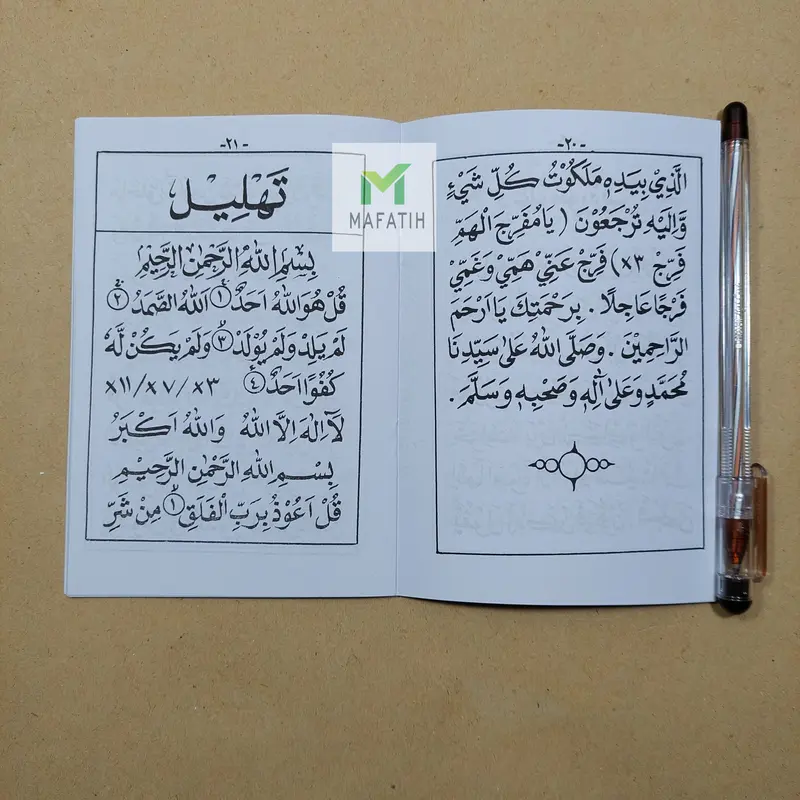 -٢٠-
الَّذِيْ بِيَدِهٖ مَلَكُوْتُ كُلِّ شَيْءٍ
وَّاِلَيْهِ تُرْجَعُوْنَ ( يَا مُفَرِّجَ الْهَمِّ
فَرِّجْ ×٣) فَرِّجْ عَنِّيْ هَمِّيْ وَغَمِّيْ
فَرَجًا عَاجِلًا . بِرَحْمَتِكَ يَا اَرْحَمَ
الرَّاحِمِيْنَ . وَصَلَّى اللهُ عَلٰى سَيِّدِنَا
مُحَمَّدٍ وَعَلٰى اٰلِهٖ وَصَحْبِهٖ وَسَلَّمَ .
-٢١-
تَهْلِيْلْ
بِسْمِ اللهِ الرَّحْمٰنِ الرَّحِيْمِ
قُلْ هُوَ اللهُ اَحَدٌ ١ اَللهُ الصَّمَدُ ٢
لَمْ يَلِدْ وَلَمْ يُوْلَدْ ٣ وَلَمْ يَكُنْ لَّهُ
كُفُوًا اَحَدٌ ٤ ×٣ / ×٧ / ×١١
لَآ اِلٰهَ اِلَّا اللهُ وَاللهُ اَكْبَرُ
بِسْمِ اللهِ الرَّحْمٰنِ الرَّحِيْمِ
قُلْ اَعُوْذُ بِرَبِّ الْفَلَقِ ١ مِنْ شَرِّ
MAFATIH